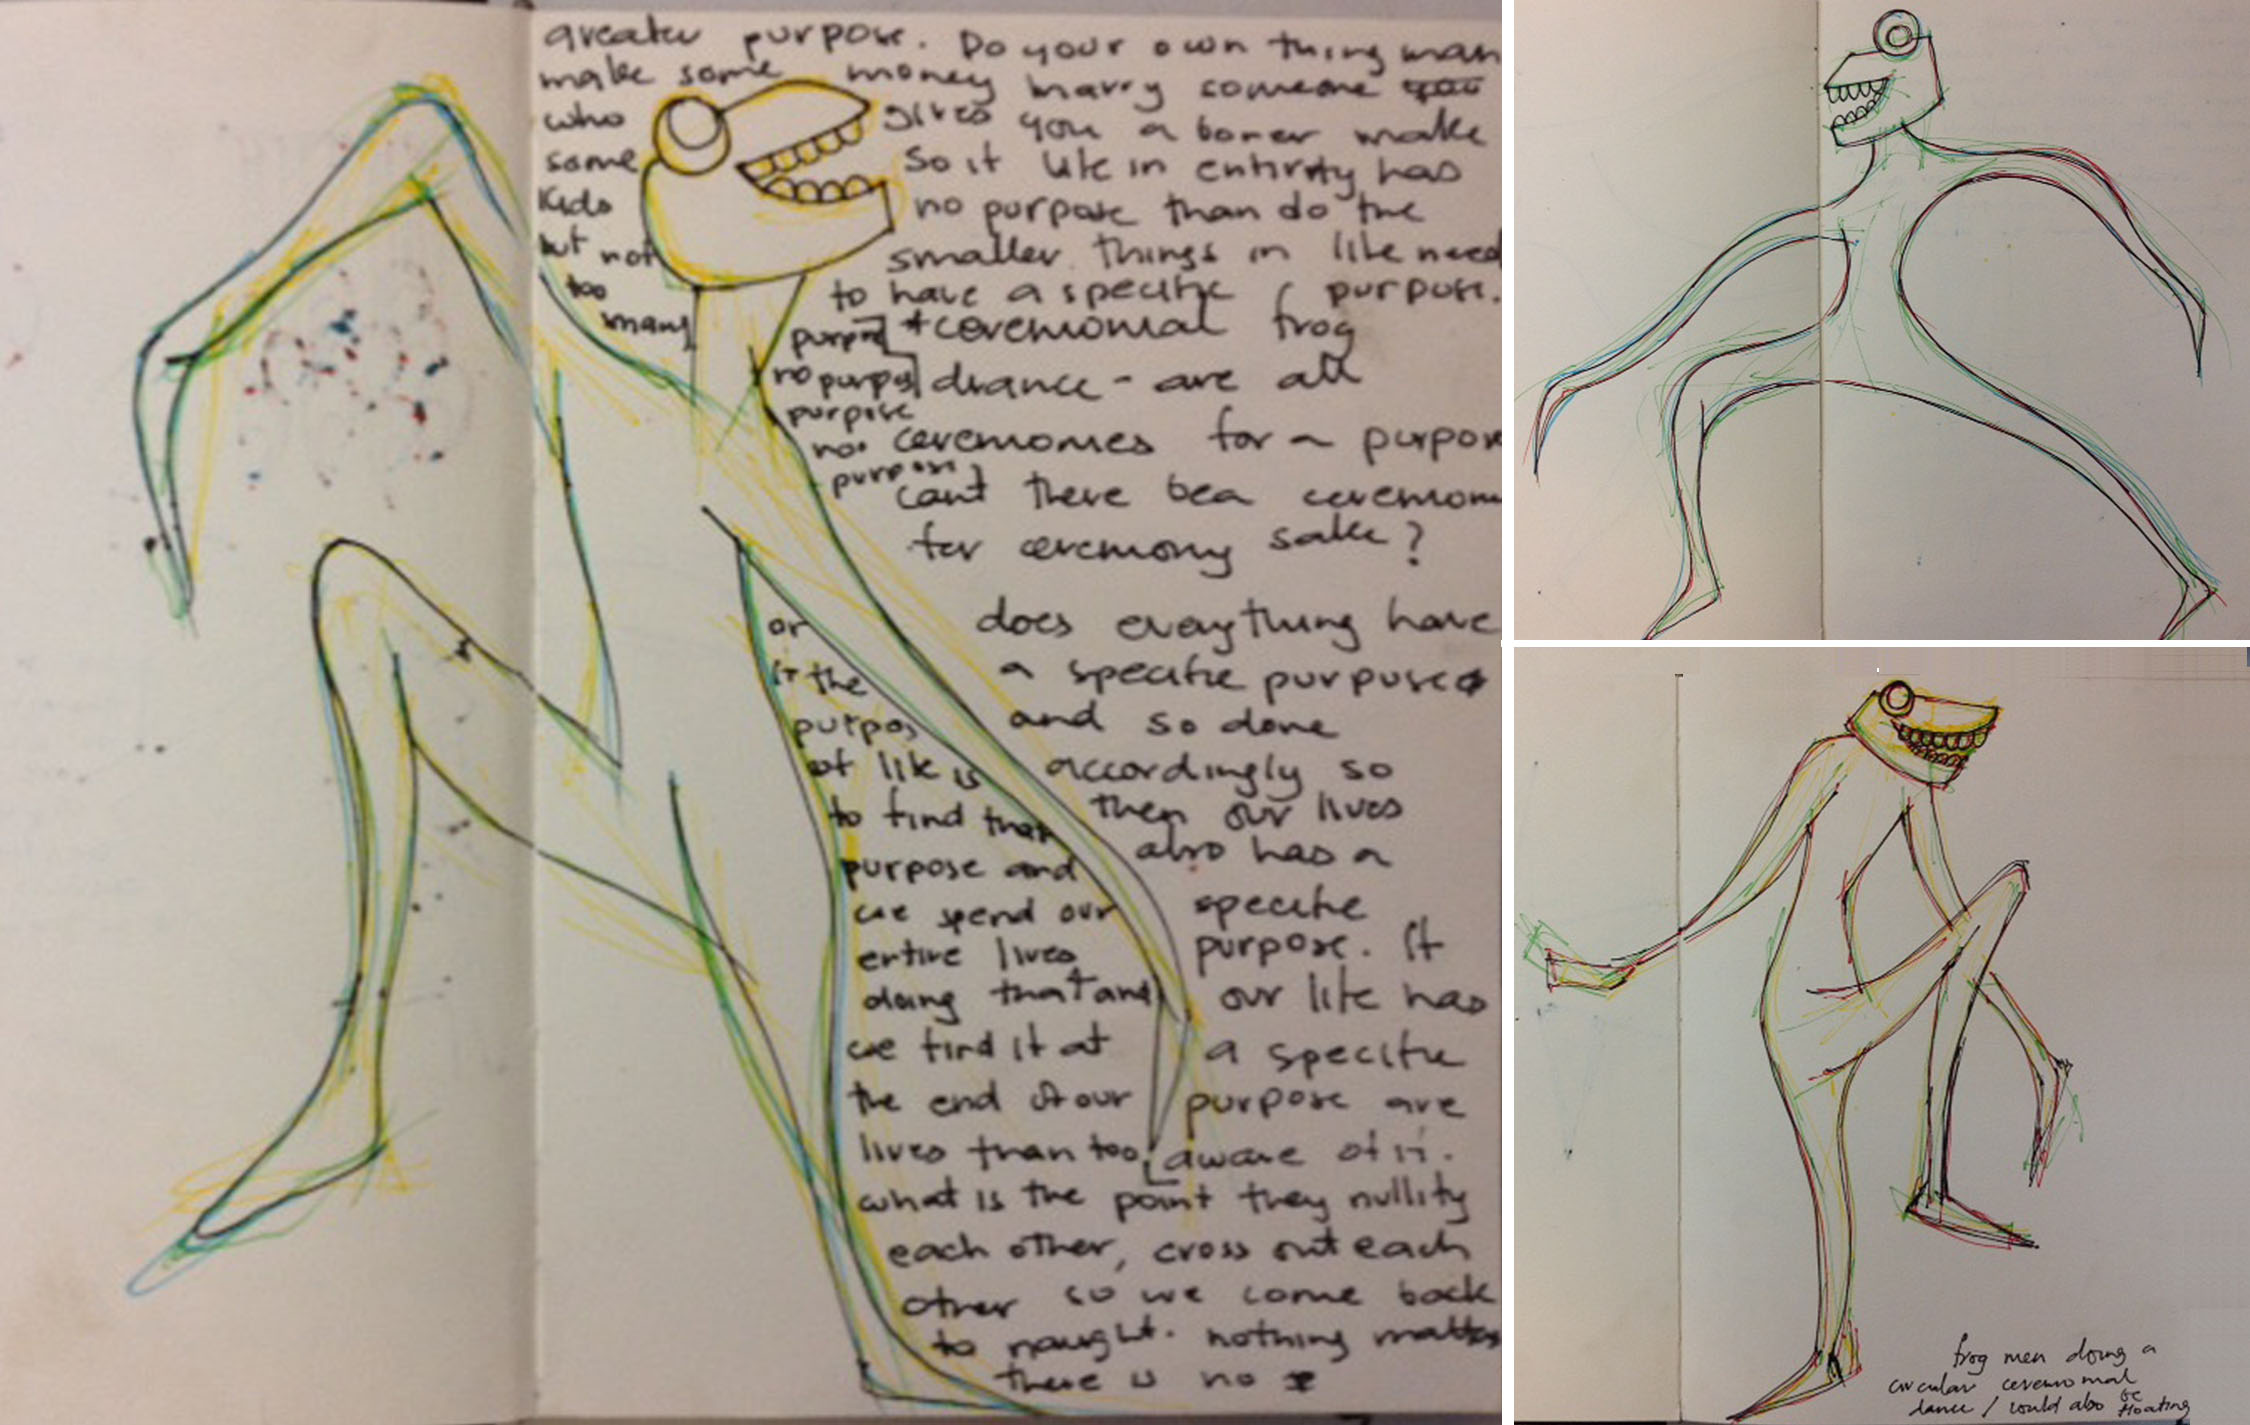 greater purpose. Do your own thing man
make some money marry someone you
who gives you a boner make
some so it life in entirity has
kids no purpose than do the
but not smaller things in life need
too to have a specific purpose.
many purpose *ceremonial frog
no purpos drance - are all
purpose
no ceremonies for a purpose
purpose cant there be a ceremony
for ceremony sake?
does everything have
a specific purpose
and so done
accordingly so
then our lives
also has a
specific
purpose. If
our life has
a specific
purpose are
aware of it.
or
if the
purpos
of life is
to find that
purpose and
we spend our
entire lives
doing that and
we find it at
the end of our
lives than too
what is the point they nullify
each other, cross out each
other so we come back
to naught. nothing matters
there is no
frog men doing a
circular ceremonial
dance / could also be
floating